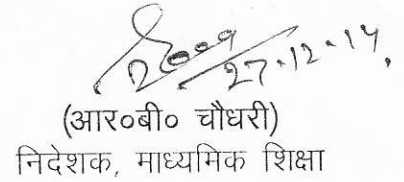 27.12.14
(आर०बी० चौधरी)
निदेशक, माध्यमिक शिक्षा